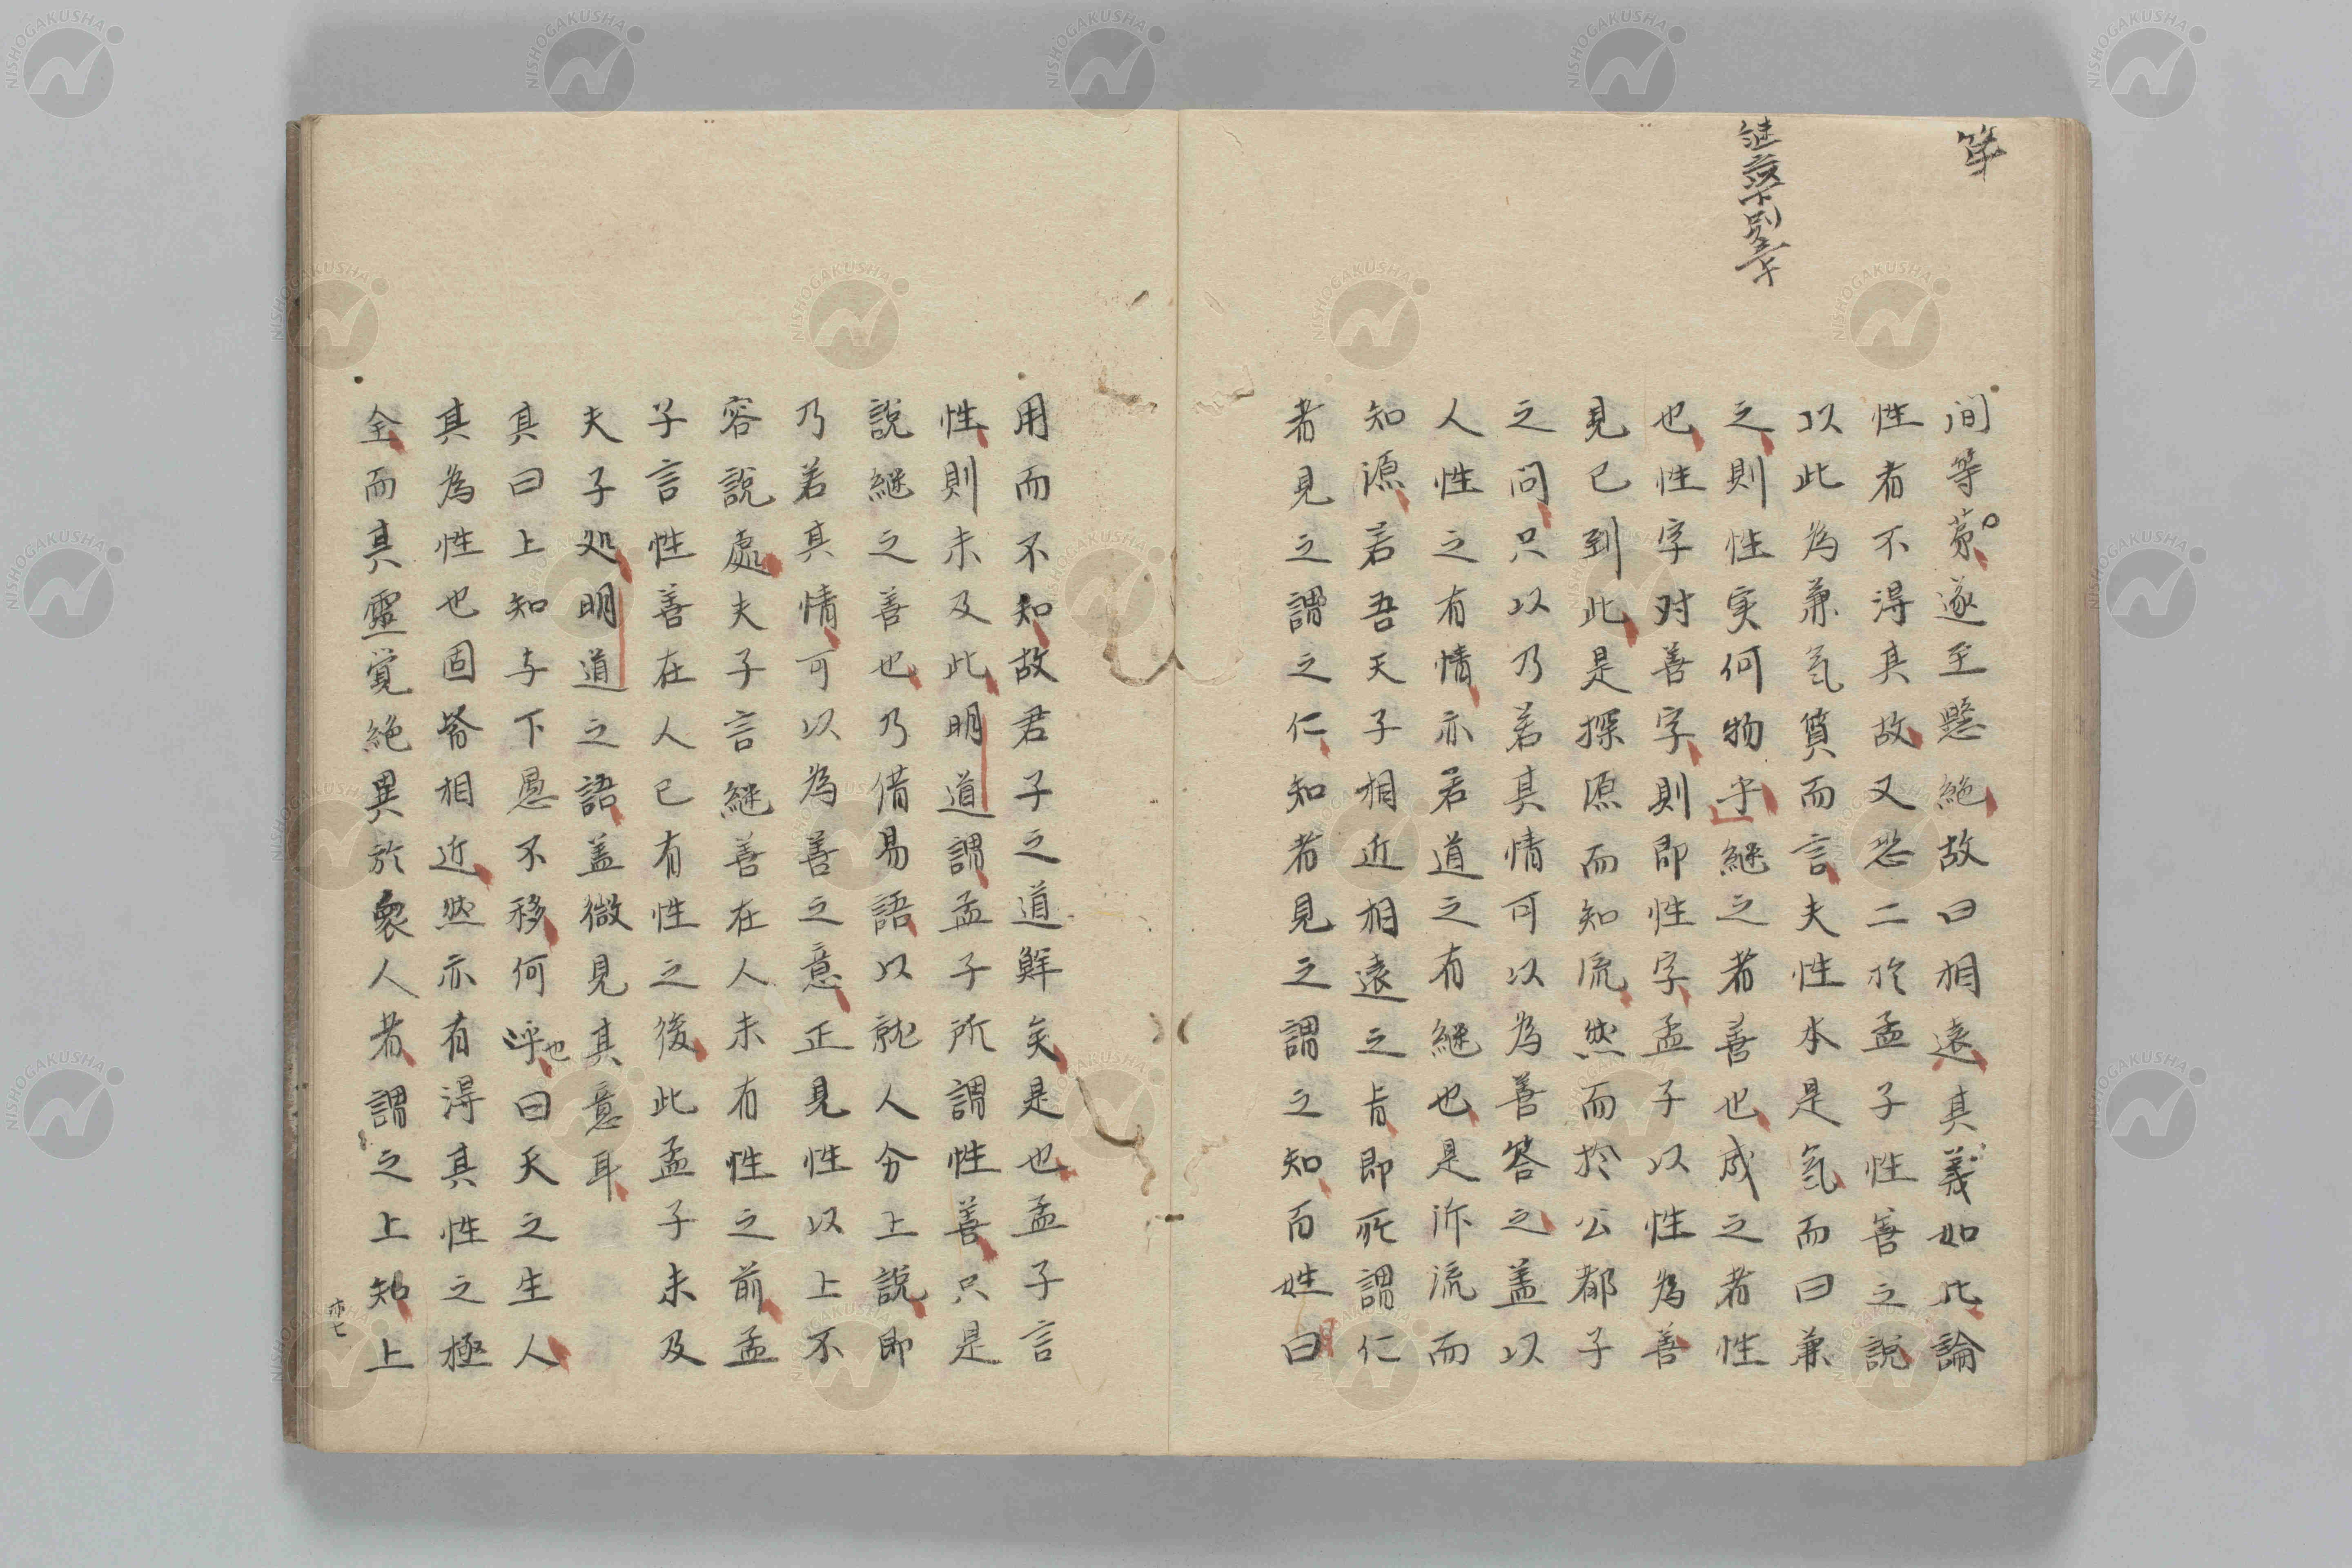 䓁
継善別章
间等苐遂至懸絶故曰相遠其義如此論
性者不得其故又恐二於孟子性善之說
以此為兼氣質而言夫性本是氣而曰兼
之則性実何物乎継之者善也成之者性
也性字对善字則即性字孟子以性為善
見已到此是探原而知流然而於公都子
之问只以乃若其情可以為善答之盖以
人性之有情亦若道之有継也是泝流而
知源若吾夫子相近相遠之㫖即所謂仁
者見之謂之仁知者見之謂之知百姓日
用而不知故君子之道鮮矣是也孟子言
性則未及此明道謂孟子所謂性善只是
說継之善也乃借易語以就人分上說即
乃若其情可以為善之意正見性以上不
容說處夫子言継善在人未有性之前孟
子言性善在人已有性之後此孟子未及
夫子処明道之語盖微見其意耳
其曰上知与下愚不移何也呼曰天之生人
其為性也固皆相近然亦有得其性之極
全而其靈覚絶異於衆人者謂之上知上
亦七